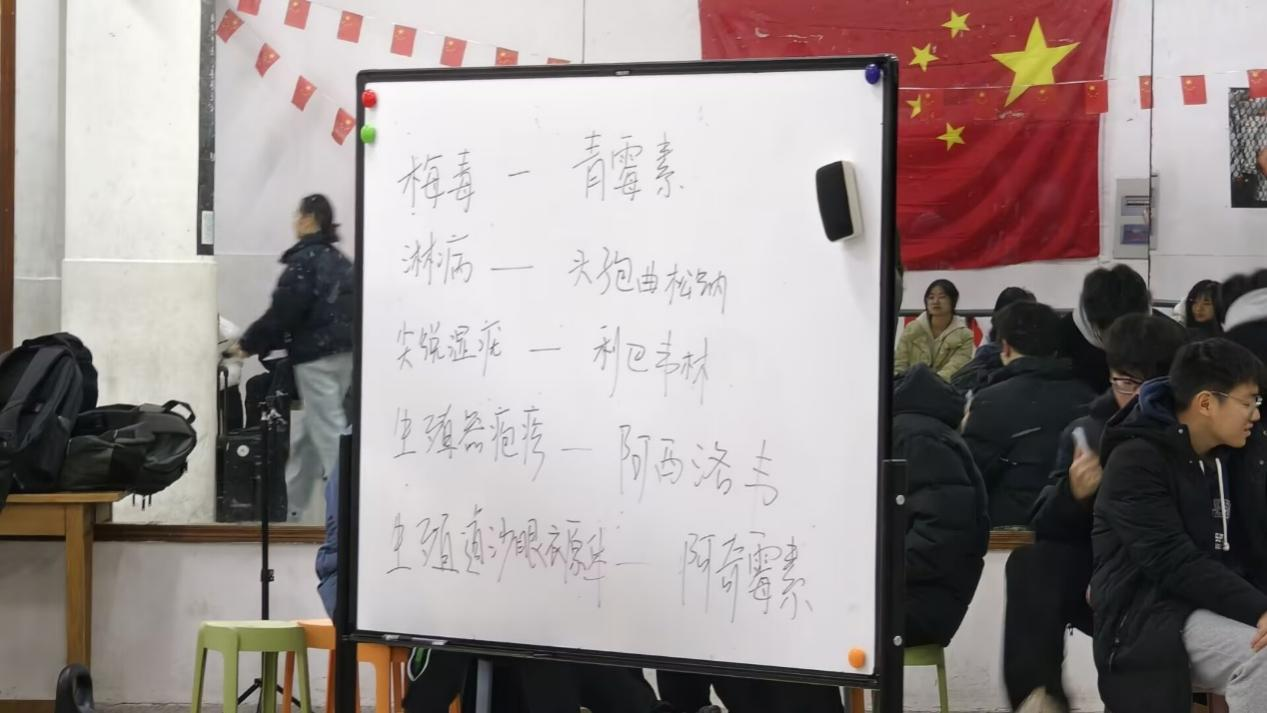 梅毒 — 青霉素
淋病 — 头孢曲松钠
尖锐湿疣 — 利巴韦林
生殖器疱疹 — 阿西洛韦
生殖道沙眼衣原体 — 阿奇霉素